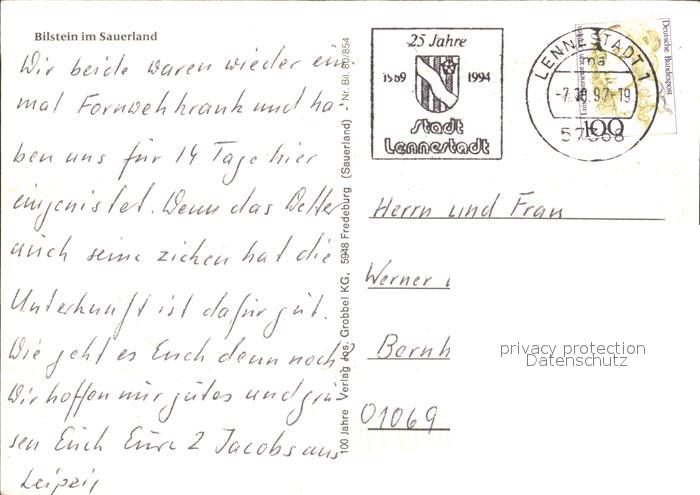 Bilstein im Sauerland
Wir beide waren wieder ein-
mal Fernwehkrank und ha-
ben uns für 14 Tage hier
eingenistet. Wenn das Wetter
auch seine zicken hat die
Unterkunft ist dafür gut.
Wie geht es Euch denn noch?
Wir hoffen nur gutes und grüs-
sen Euch Eure 2 Jacobs aus
Leipzig
100 Jahre Verlag Jos. Grobbel KG, 5948 Fredeburg (Sauerland) - Nr. Bil. 80/854
25 Jahre
1969 1994
Stadt
Lennestadt
LENNESTADT 1
ma
-7.10.97-19
ma
57368
Deutsche Bundespost
100
Herrn und Frau
Werner
Bernh
01069
privacy protection
Datenschutz